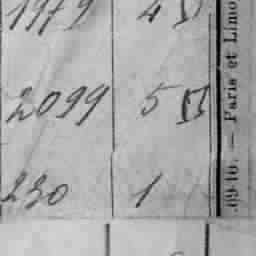 1979 4
2099 5 VI
230 1
.69-10. — Paris et Limo